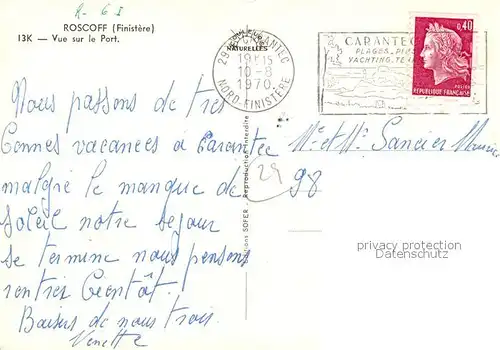 R- 6 I
ROSCOFF (Finistère)
13K — Vue sur le Port.
COULEURS
NATURELLES
29 CARANTEC
19H15
10-8
1970
NORD-FINISTÈRE
CARANTEC
PLAGES-PI
YACHTING-TE
0,40
POSTES
REPUBLIQUE FRANÇAISE
Nous passons de tres
bonnes vacances à Carantec
malgré le manque de
soleil notre sejour
se termine nous pensons
rentrer bientôt.
Baisers de nous trois.
Ginette
Mr et Me Sancier Maurice
29
98
Editions SOFER - Reproduction Interdite
privacy protection
Datenschutz